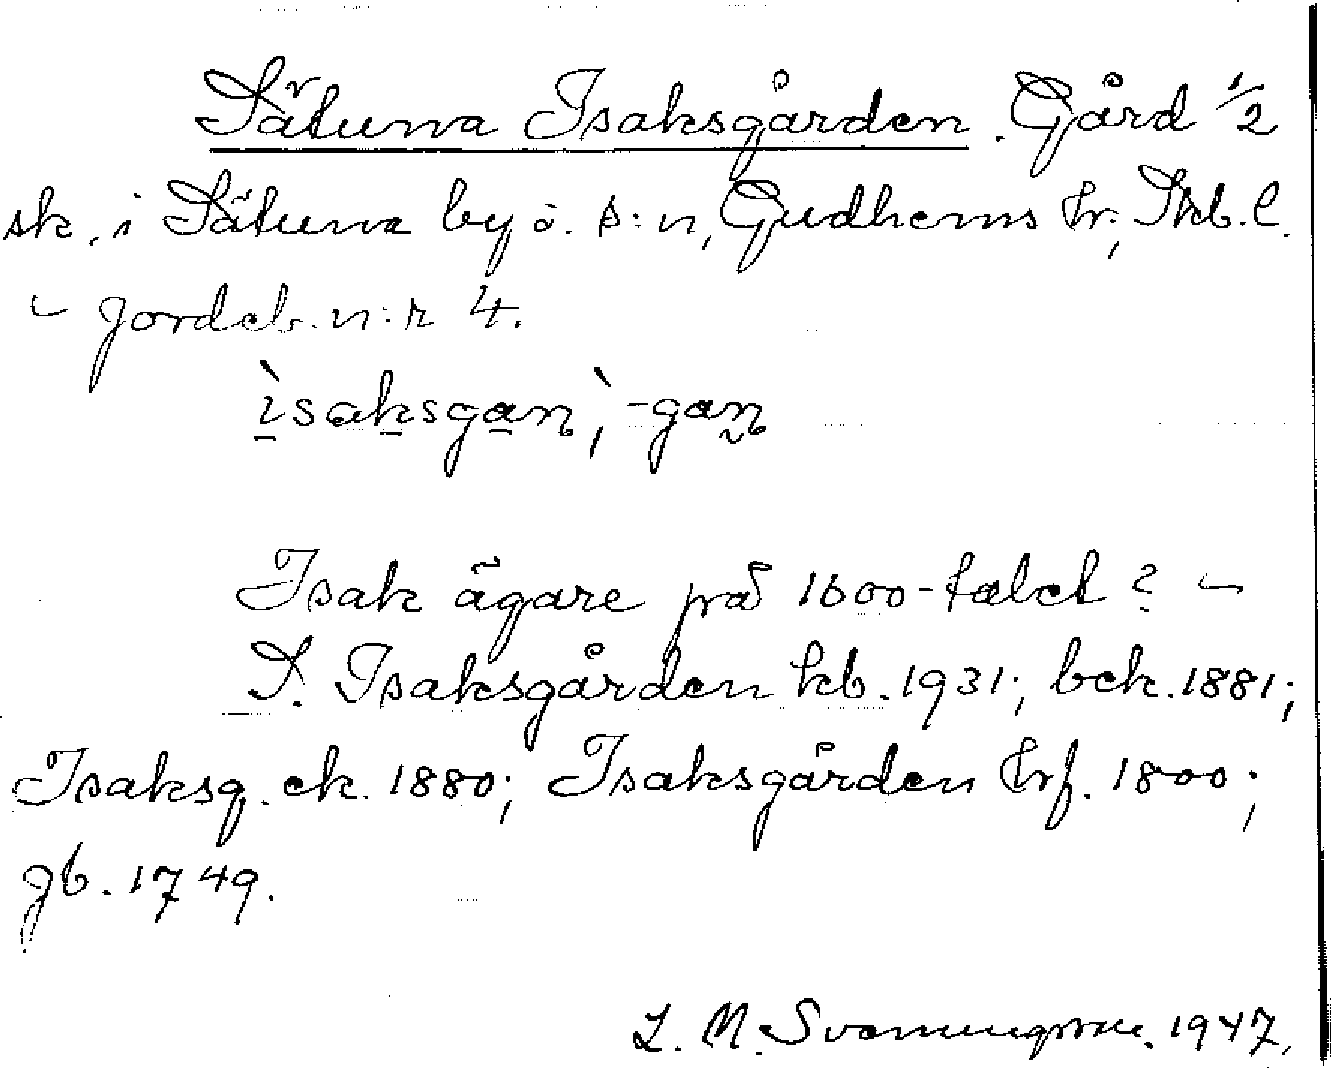 Sätuna Isaksgården. Gård 1/2
sk. i Sätuna by o. s:n, Gudhems hr; Skb. l.
– Jordeb. n:r 4.
ìsaksgan, -gan
Isak ägare på 1600-talet? –
S. Isaksgården kb. 1931; bek. 1881;
Isaksg. ek. 1880; Isaksgården hrf. 1800;
gb. 1749.
L. M. Svenungsson. 1947.